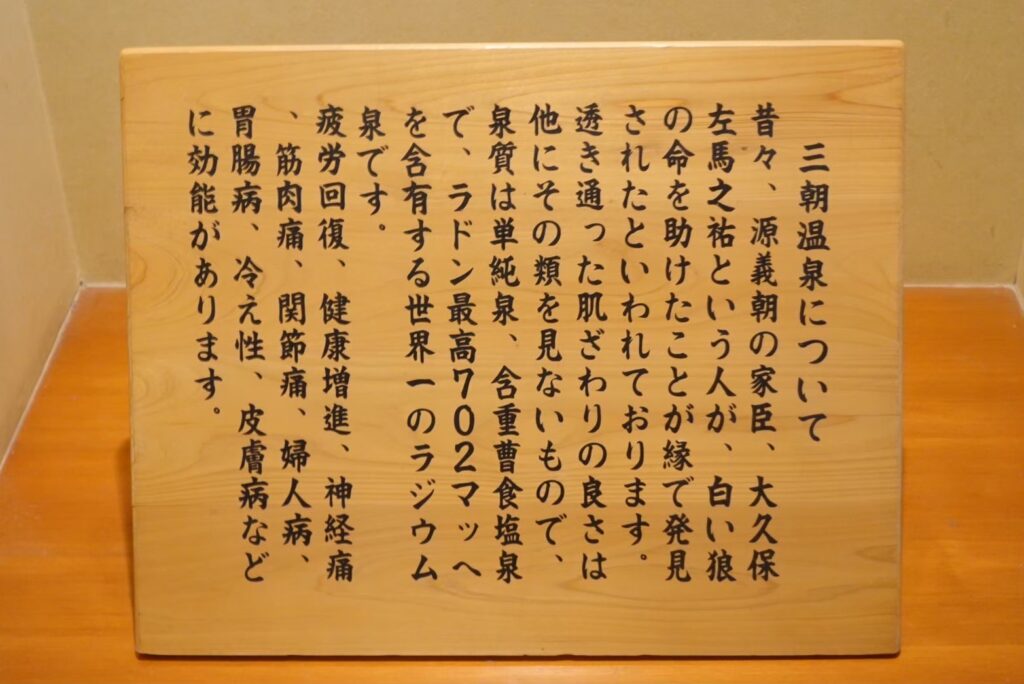 三朝温泉について
昔々、源義朝の家臣、大久保
左馬之祐という人が、白い狼
の命を助けたことが縁で発見
されたといわれております。
透き通った肌ざわりの良さは
他にその類を見ないもので、
泉質は単純泉、含重曹食塩泉
で、ラドン最高702マッヘ
を含有する世界一のラジウム
泉です。
疲労回復、健康増進、神経痛
、筋肉痛、関節痛、婦人病、
胃腸病、冷え性、皮膚病など
に効能があります。